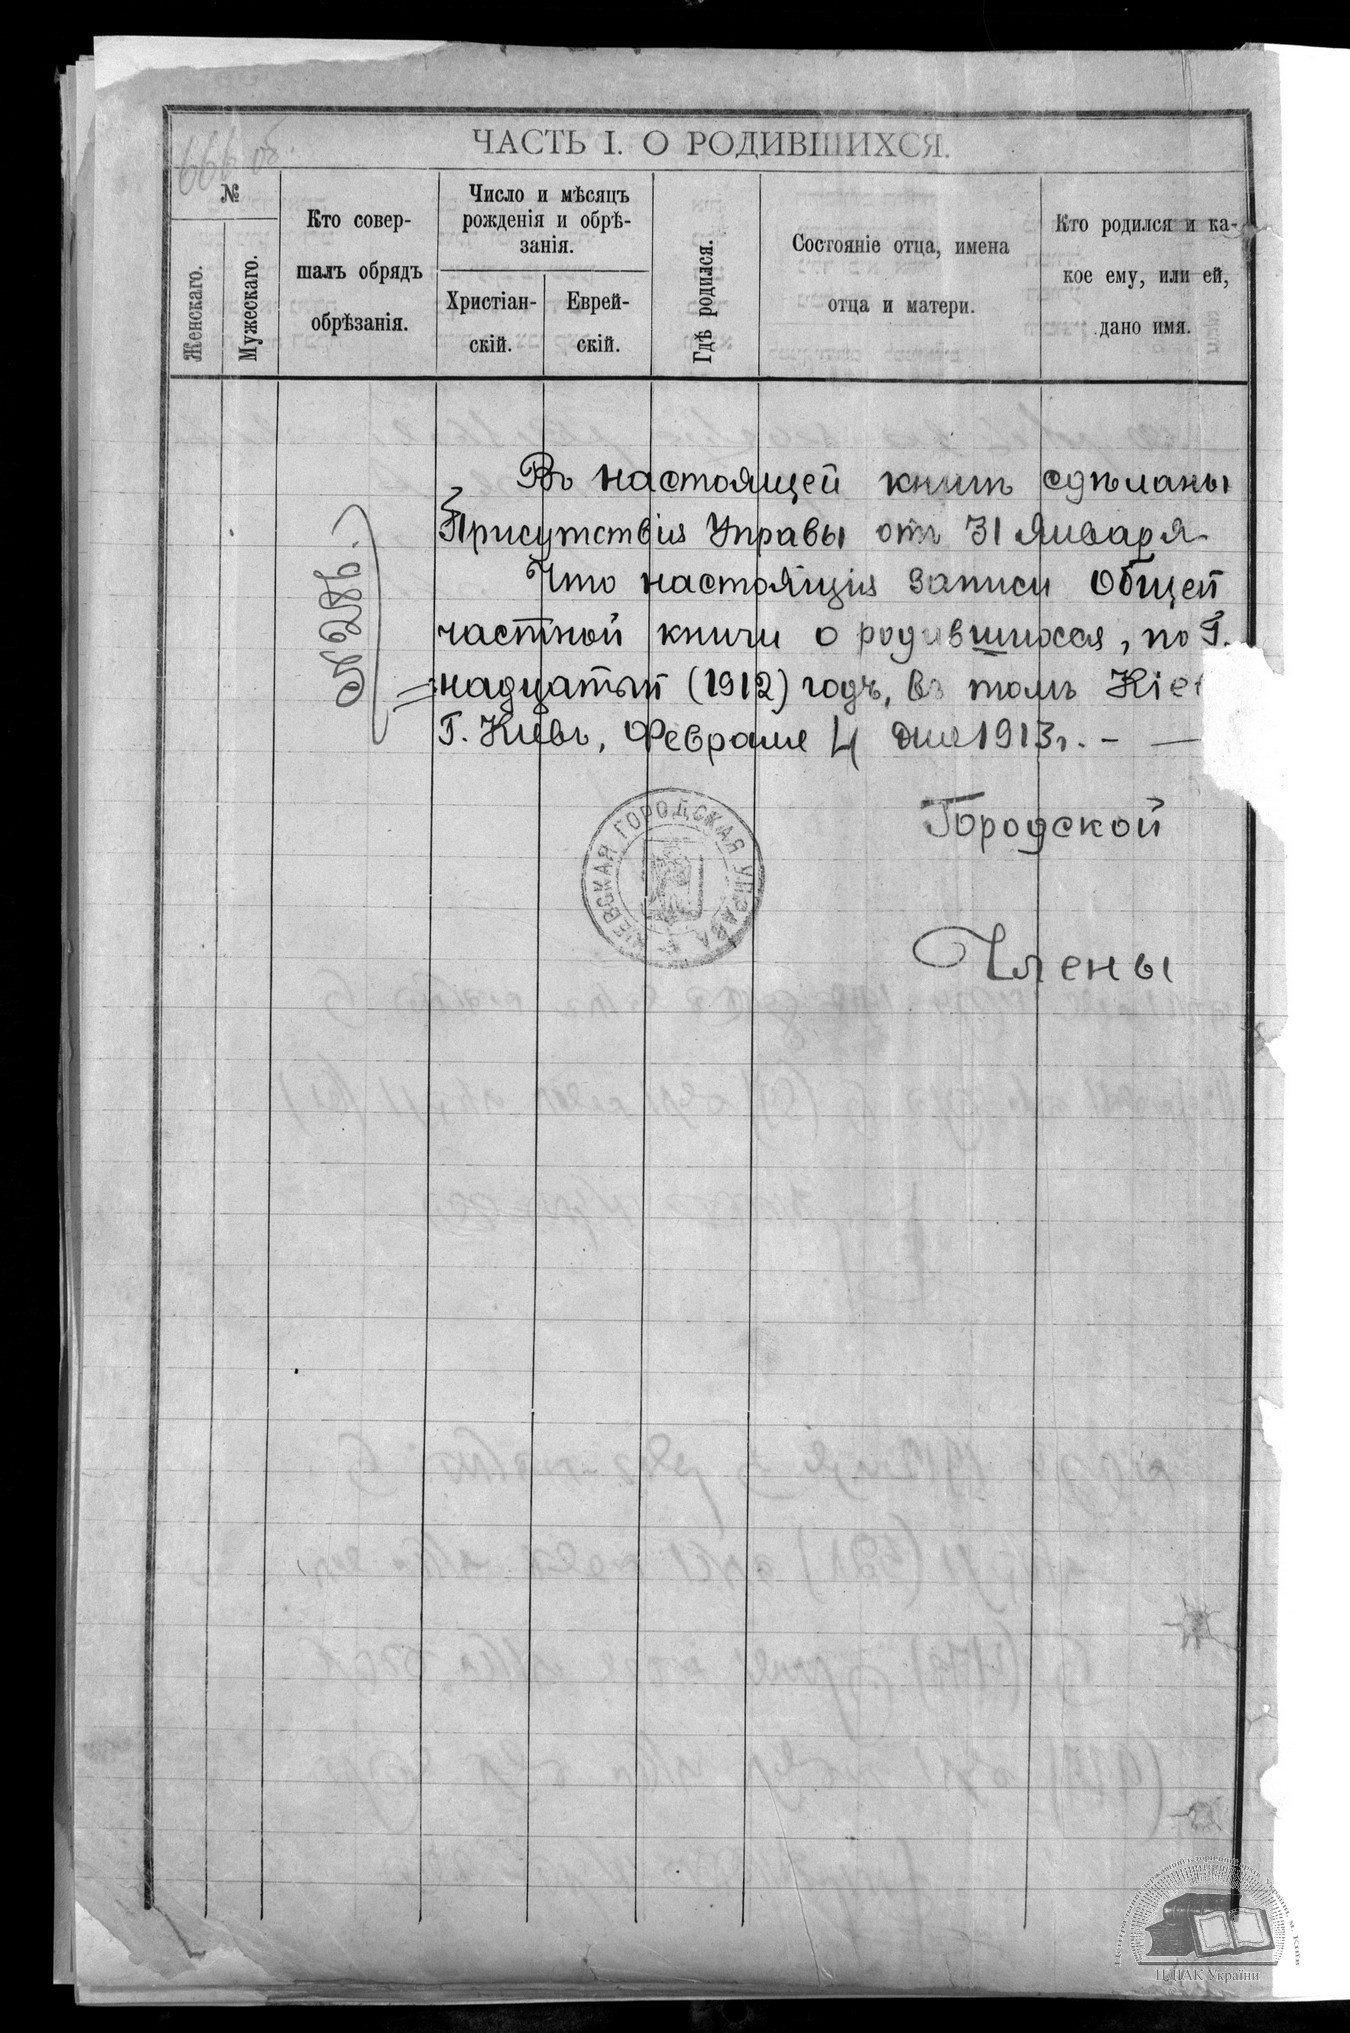 666 об.
ЧАСТЬ I. О РОДИВШИХСЯ.
№
Женскаго.
Мужескаго.
Кто совер-
шалъ обрядъ
обрѣзанія.
Число и мѣсяцъ
рожденія и обрѣ-
занія.
Христіан-
скій.
Еврей-
скій.
Гдѣ родился.
Состояніе отца, имена
отца и матери.
Кто родился и ка-
кое ему, или ей,
дано имя.
Въ настоящей книгѣ сдѣланы
Присутствія Управы отъ 31 Января
Что настоящія записи Общей
частной книги о родившихся, по Г.
надцатый (1912) годъ, въ томъ Кіев
Г. Кіевъ, Февраля 4 дня 1913 г. - —
№ 286.
Городской
Члены
КІЕВСКАЯ ГОРОДСКАЯ УПРАВА
ЦДІАК України